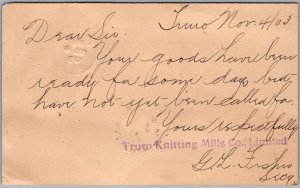 Truro Nov. 4/03
Dear Sir.
Your goods have been
ready for some days but
have not yet been called for.
Yours respectfully
Truro Knitting Mills Co., Limited
G. L.
Secy